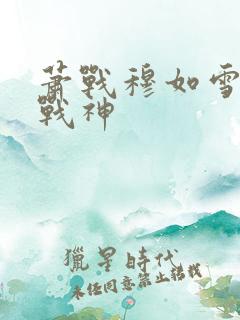 蕭戰穆如雪
戰神
獵星時代
未经同意禁止转载